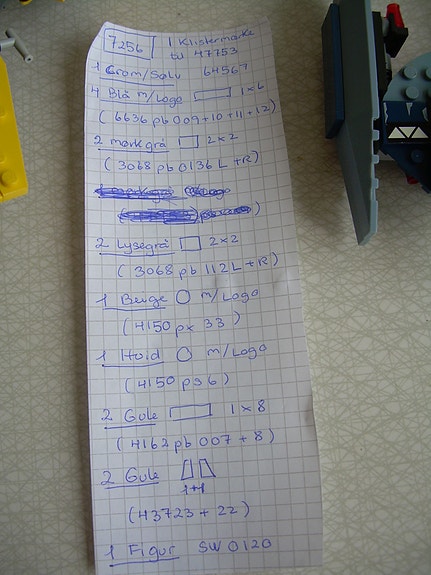 7256 1 Klistermærke
til 47753
1 Grom/Sølv 64567
4 Blå m/Logo 1x6
(6636 pb 009+10+11+12)
2 mørkgrå 2x2
(3068 pb 0136 L + R)
2 Lysegrå 2x2
(3068 pb 112 L + R)
1 Beige m/Logo
(4150 px 33)
1 Hvid m/Logo
(4150 ps6)
2 Gule 1x8
(4162 pb 007 + 8)
2 Gule
1+1
(43723 + 22)
1 Figur SW 0120